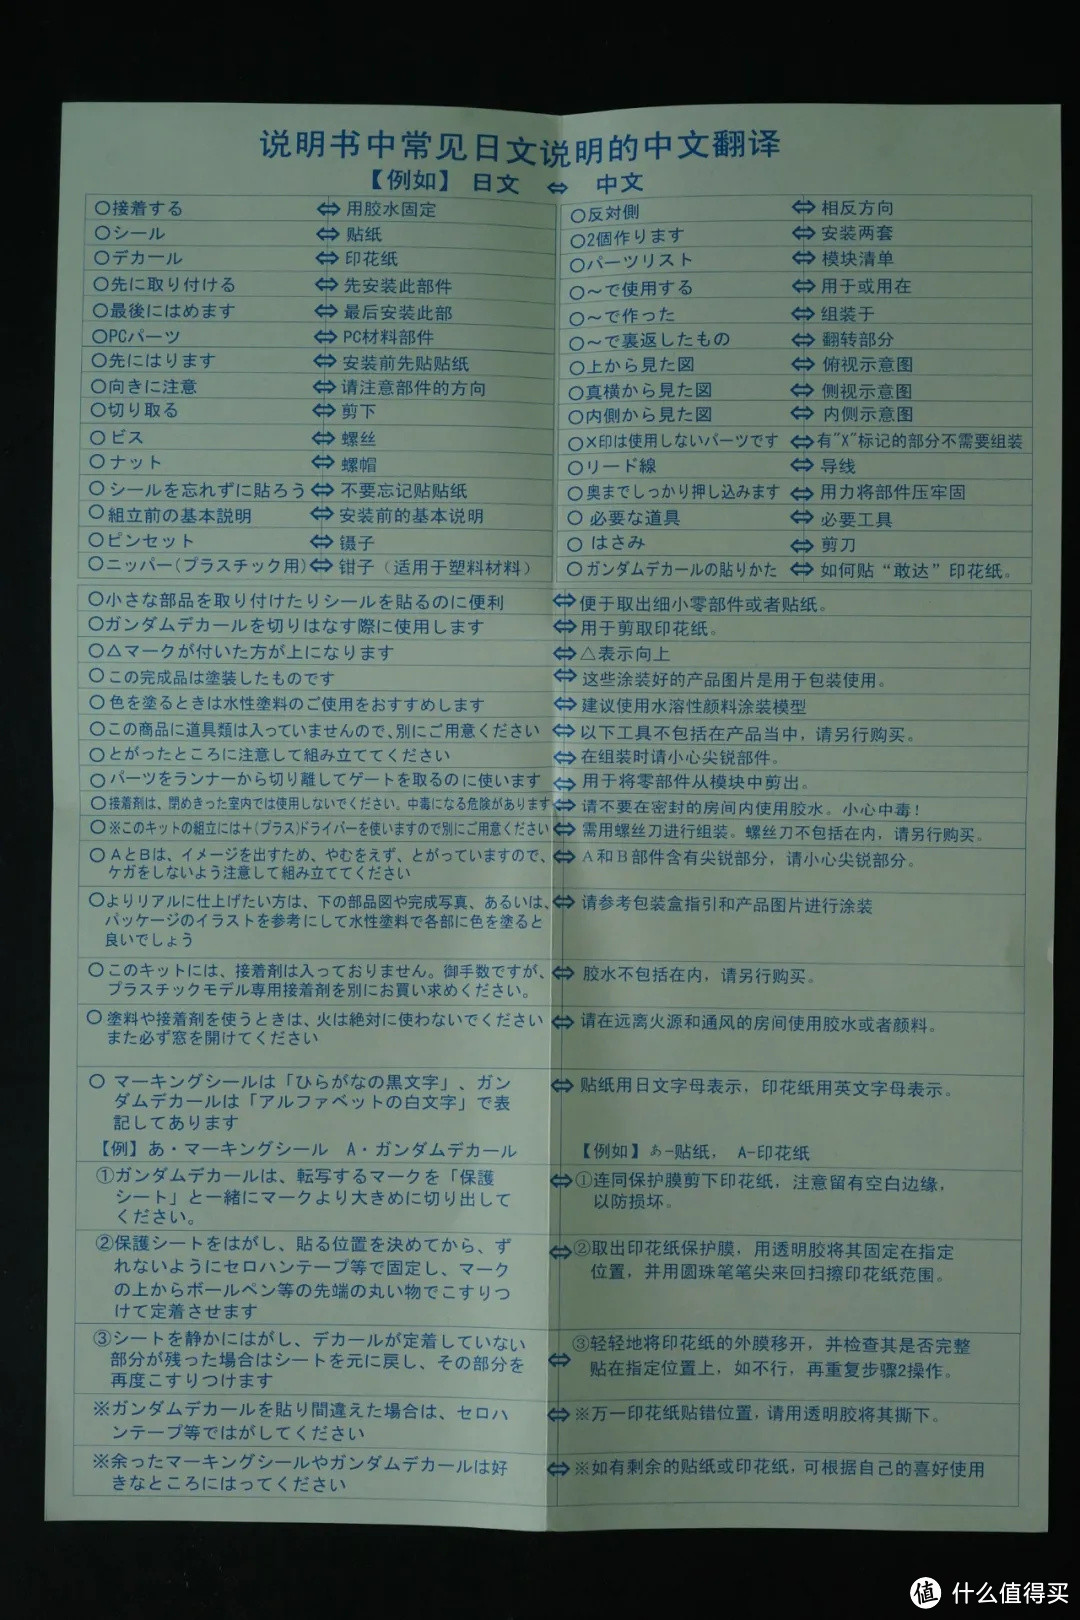 说明书中常见日文说明的中文翻译
【例如】 日文 ⇔ 中文
○接着する ⇔ 用胶水固定
○シール ⇔ 贴纸
○デカール ⇔ 印花纸
○先に取り付ける ⇔ 先安装此部件
○最後にはめます ⇔ 最后安装此部
○PCパーツ ⇔ PC材料部件
○先にはります ⇔ 安装前先贴贴纸
○向きに注意 ⇔ 请注意部件的方向
○切り取る ⇔ 剪下
○ビス ⇔ 螺丝
○ナット ⇔ 螺帽
○シールを忘れずに貼ろう ⇔ 不要忘记贴贴纸
○組立前の基本説明 ⇔ 安装前的基本说明
○ピンセット ⇔ 镊子
○ニッパー(プラスチック用) ⇔ 钳子（适用于塑料材料）
○反対側 ⇔ 相反方向
○2個作ります ⇔ 安装两套
○パーツリスト ⇔ 模块清单
○～で使用する ⇔ 用于或用在
○～で作った ⇔ 组装于
○～で裏返したもの ⇔ 翻转部分
○上から見た図 ⇔ 俯视示意图
○真横から見た図 ⇔ 侧视示意图
○内側から見た図 ⇔ 内侧示意图
○×印は使用しないパーツです ⇔ 有"X"标记的部分不需要组装
○リード線 ⇔ 导线
○奥までしっかり押し込みます ⇔ 用力将部件压牢固
○必要な道具 ⇔ 必要工具
○はさみ ⇔ 剪刀
○ガンダムデカールの貼りかた ⇔ 如何贴“敢达”印花纸。
○小さな部品を取り付けたりシールを貼るのに便利 ⇔ 便于取出细小零部件或者贴纸。
○ガンダムデカールを切りはなす際に使用します ⇔ 用于剪取印花纸。
○△マークが付いた方が上になります ⇔ △表示向上
○この完成品は塗装したものです ⇔ 这些涂装好的产品图片是用于包装使用。
○色を塗るときは水性塗料のご使用をおすすめします ⇔ 建议使用水溶性颜料涂装模型
○この商品に道具類は入っていませんので、別にご用意ください ⇔ 以下工具不包括在产品当中，请另行购买。
○とがったところに注意して組み立ててください ⇔ 在组装时请小心尖锐部件。
○パーツをランナーから切り離してゲートを取るのに使います ⇔ 用于将零部件从模块中剪出。
○接着剤は、閉めきった室内では使用しないでください。中毒になる危険があります ⇔ 请不要在密封的房间内使用胶水。小心中毒！
○※このキットの組立には＋(プラス)ドライバーを使いますので別にご用意ください ⇔ 需用螺丝刀进行组装。螺丝刀不包括在内，请另行购买。
○ＡとＢは、イメージを出すため、やむをえず、とがっていますので、 ⇔ Ａ和Ｂ部件含有尖锐部分，请小心尖锐部分。
ケガをしないよう注意して組み立ててください
○よりリアルに仕上げたい方は、下の部品図や完成写真、あるいは、 ⇔ 请参考包装盒指引和产品图片进行涂装
パッケージのイラストを参考にして水性塗料で各部に色を塗ると
良いでしょう
○このキットには、接着剤は入っておりません。御手数ですが、 ⇔ 胶水不包括在内，请另行购买。
プラスチックモデル専用接着剤を別にお買い求めください。
○塗料や接着剤を使うときは、火は絶対に使わないでください ⇔ 请在远离火源和通风的房间使用胶水或者颜料。
また必ず窓を開けてください
○マーキングシールは「ひらがなの黒文字」、ガン ⇔ 贴纸用日文字母表示，印花纸用英文字母表示。
ダムデカールは「アルファベットの白文字」で表
記してあります
【例】あ・マーキングシール A・ガンダムデカール 【例如】あ-贴纸， A-印花纸
①ガンダムデカールは、転写するマークを「保護 ⇔ ①连同保护膜剪下印花纸，注意留有空白边缘，
シート」と一緒にマークより大きめに切り出して 以防损坏。
ください。
②保護シートをはがし、貼る位置を決めてから、ず ⇔ ②取出印花纸保护膜，用透明胶将其固定在指定
れないようにセロハンテープ等で固定し、マーク 位置，并用圆珠笔笔尖来回扫擦印花纸范围。
の上からボールペン等の先端の丸い物でこすりつ
けて定着させます
③シートを静かにはがし、デカールが定着していない ⇔ ③轻轻地将印花纸的外膜移开，并检查其是否完整
部分が残った場合はシートを元に戻し、その部分を 贴在指定位置上，如不行，再重复步骤2操作。
再度こすりつけます
※ガンダムデカールを貼り間違えた場合は、セロハ ⇔ ※万一印花纸贴错位置，请用透明胶将其撕下。
ンテープ等ではがしてください
※余ったマーキングシールやガンダムデカールは好 ⇔ ※如有剩余的贴纸或印花纸，可根据自己的喜好使用
きなところにはってください
值 什么值得买